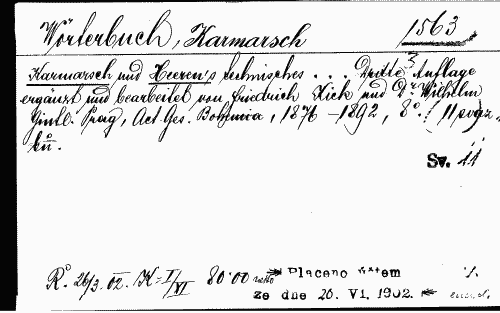 Wörterbuch, Karmarsch 1563
Karmarsch und Heeren's technisches . . . Dritte Auflage
ergänzt und bearbeitet von Friedrich Kick und Dr. Wilhelm
Gintl. Prag, Act. Ges. Bohemia, 1876 – 1892, 8°. (11
Sv. 11
R. 26/3. 02. K = I/VI 80·00 netto Placeno
ze dne 26. VI. 1902.